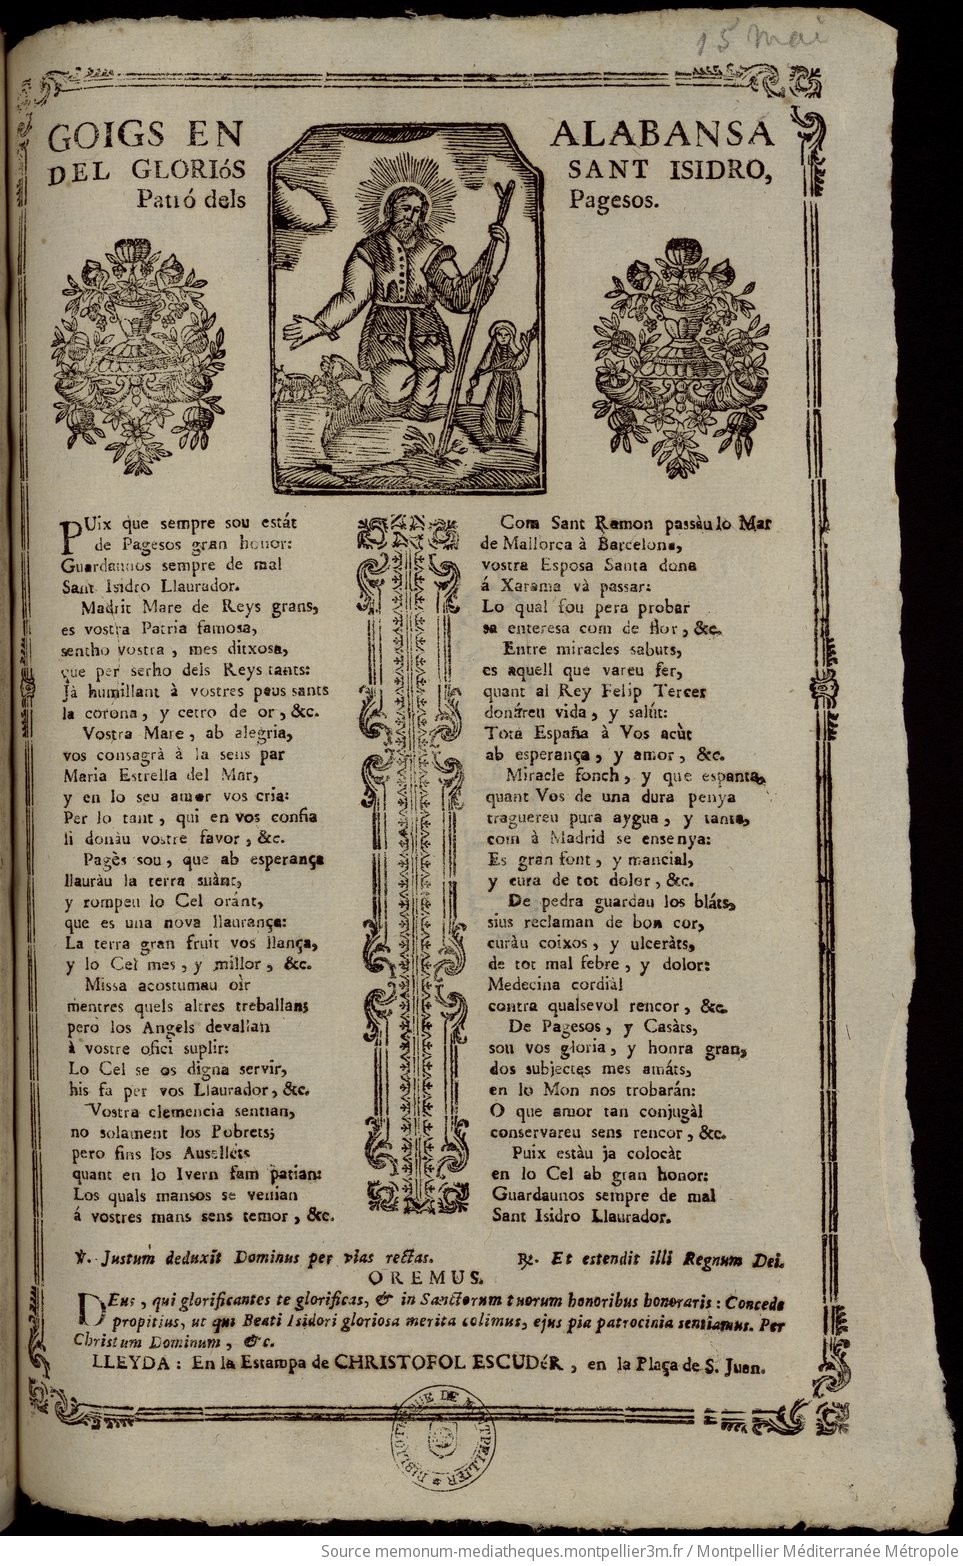 15 mai
GOIGS EN ALABANSA
DEL GLORIóS SANT ISIDRO,
Patró dels Pagesos.
PUix que sempre sou estát
de Pagesos gran honor:
Guardaunos sempre de mal
Sant Isidro Llaurador.
Madrit Mare de Reys grans,
es vostra Patria famosa,
sentho vostra, mes ditxosa,
que per serho dels Reys tants:
Jà humillant à vostres peus sants
la corona, y cetro de or, &c.
Vostra Mare, ab alegria,
vos consagrà à la sens par
Maria Estrella del Mar,
y en lo seu amor vos cria:
Per lo tant, qui en vos confia
li donàu vostre favor, &c.
Pagès sou, que ab esperança
llauràu la terra suànt,
y rompeu lo Cel oránt,
que es una nova llaurança:
La terra gran fruit vos llança,
y lo Cel mes, y millor, &c.
Missa acostumau oìr
mentres quels altres treballan;
però los Angels devallan
à vostre ofici suplir:
Lo Cel se os digna servir,
his fa per vos Llaurador, &c.
Vostra clemencia sentian,
no solament los Pobrets;
pero fins los Ausellets
quant en lo Ivern fam patian:
Los quals mansos se venian
á vostres mans sens temor, &c.
Com Sant Ramon passàu lo Mar
de Mallorca à Barcelona,
vostra Esposa Santa dona
á Xarama và passar:
Lo qual fou pera probar
sa enteresa com de flor, &c.
Entre miracles sabuts,
es aquell que vareu fer,
quant al Rey Felip Tercer
donáreu vida, y salút:
Tota España à Vos acùt
ab esperança, y amor, &c.
Miracle fonch, y que espanta,
quant Vos de una dura penya
traguereu pura aygua, y tanta,
com à Madrid se ensenya:
Es gran font, y mancial,
y cura de tot dolor, &c.
De pedra guardau los bláts,
sius reclaman de bon cor,
curàu coixos, y ulceràts,
de tot mal febre, y dolor:
Medecina cordiàl
contra qualsevol rencor, &c.
De Pagesos, y Casàts,
sou vos gloria, y honra gran,
dos subjectes mes amáts,
en lo Mon nos trobarán:
O que amor tan conjugàl
conservareu sens rencor, &c.
Puix estàu ja colocàt
en lo Cel ab gran honor:
Guardaunos sempre de mal
Sant Isidro Llaurador.
℣. Justum deduxit Dominus per vias rectas. ℟. Et estendit illi Regnum Dei.
OREMUS.
DEus, qui glorificantes te glorificas, & in Sanctorum tuorum honoribus honoraris: Concede
propitius, ut qui Beati Isidori gloriosa merita colimus, ejus pia patrocinia sentiamus. Per
Christum Dominum, &c.
LLEYDA: En la Estampa de CHRISTOFOL ESCUDéR, en la Plaça de S. Juan.
BIBLIOTHEQUE DE MONTPELLIER
Source memonum-mediatheques.montpellier3m.fr / Montpellier Méditerranée Métropole